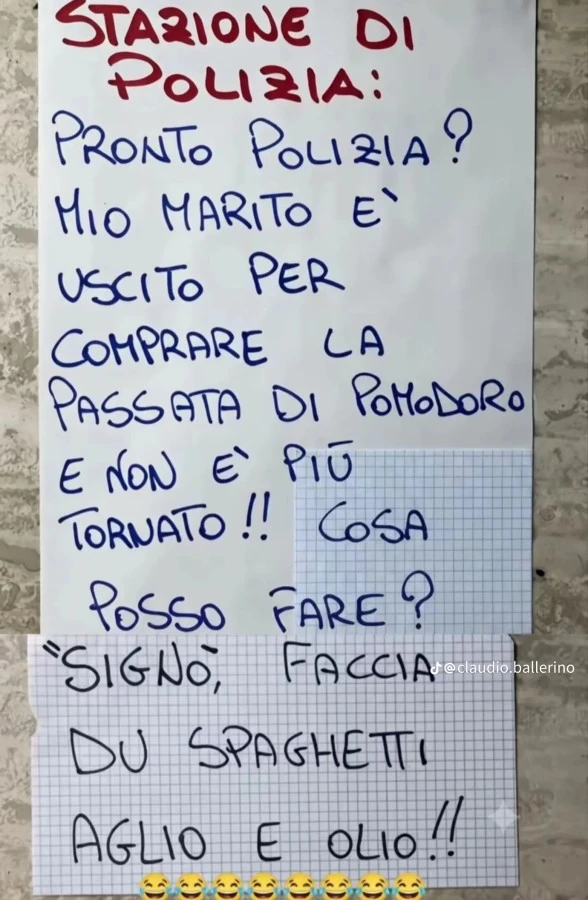 STAZIONE DI
POLIZIA:
PRONTO POLIZIA?
MIO MARITO E'
USCITO PER
COMPRARE LA
PASSATA DI POMODORO
E NON E' PIÙ
TORNATO!! COSA
POSSO FARE?
"SIGNO', FACCIA
@claudio.ballerino
DU SPAGHETTI
AGLIO E OLIO!!
😂😂😂😂😂😂😂😂